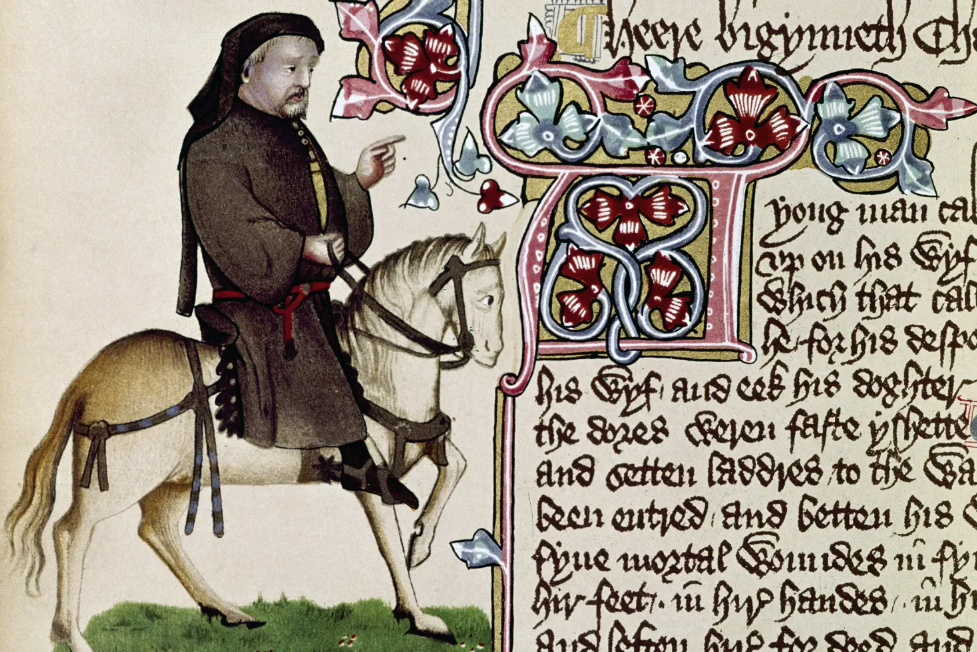 heere bigynneth Ch
yong man cal
vp on his wyf
which that cal
he for his despo
his wyf and eek his doghter
the dores weren faste yshette
and setten laddres to the wa
been entred and betten his
fyue mortal woundes in
hir feet in hir handes in h
and leften hir for deed and